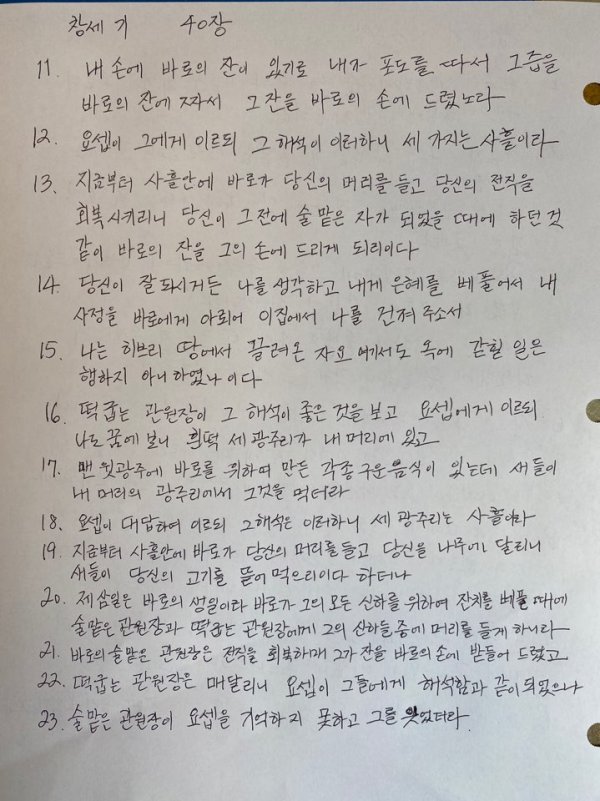 창세기 40장
11. 내 손에 바로의 잔이 있기로 내가 포도를 따서 그 즙을
바로의 잔에 짜서 그 잔을 바로의 손에 드렸노라
12. 요셉이 그에게 이르되 그 해석이 이러하니 세 가지는 사흘이라
13. 지금부터 사흘안에 바로가 당신의 머리를 들고 당신의 전직을
회복시키리니 당신이 그전에 술 맡은 자가 되었을 때에 하던 것
같이 바로의 잔을 그의 손에 드리게 되리이다
14. 당신이 잘 되시거든 나를 생각하고 내게 은혜를 베풀어서 내
사정을 바로에게 아뢰어 이집에서 나를 건져 주소서
15. 나는 히브리 땅에서 끌려온 자요 여기서도 옥에 갇힐 일은
행하지 아니하였나이다
16. 떡굽는 관원장이 그 해석이 좋은 것을 보고 요셉에게 이르되
나도 꿈에 보니 흰떡 세 광주리가 내 머리에 있고
17. 맨 윗광주에 바로를 위하여 만든 각종 구운 음식이 있는데 새들이
내 머리의 광주리에서 그것을 먹더라
18. 요셉이 대답하여 이르되 그해석은 이러하니 세 광주리는 사흘이라
19. 지금부터 사흘안에 바로가 당신의 머리를 들고 당신을 나무에 달리니
새들이 당신의 고기를 뜯어 먹으리이다 하더니
20. 제삼일은 바로의 생일이라 바로가 그의 모든 신하를 위하여 잔치를 베풀 때에
술맡은 관원장과 떡굽는 관원장에게 그의 신하들 중에 머리를 들게 하니라
21. 바로의 술맡은 관원장은 전직을 회복하매 그가 잔을 바로의 손에 받들어 드렸고
22. 떡굽는 관원장은 매달리니 요셉이 그들에게 해석함과 같이 되었으나
23. 술맡은 관원장이 요셉을 기억하지 못하고 그를 잊었더라